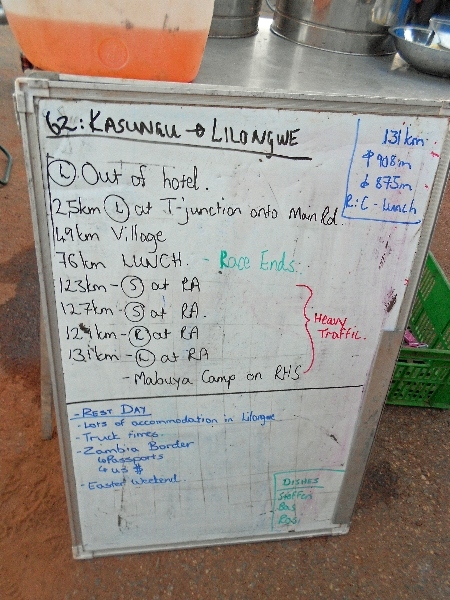 62: KASUNGU → LILONGWE
131km
↑ 908m
↓ 875m
R:C - Lunch
Ⓛ Out of hotel.
2.5km Ⓛ at T-junction onto Main Rd.
49km Village
76km LUNCH. - Race Ends.
123km - Ⓢ at RA
127km - Ⓢ at RA.
129km - Ⓡ at RA
131km - Ⓛ at RA
Heavy
Traffic.
- Mabuya Camp on RHS
- REST DAY
- Lots of accommodation in Lilongwe
- Truck times.
- Zambia Border
↳ Passports
↳ US $
- Easter Weekend.
DISHES
Steffen
Bas